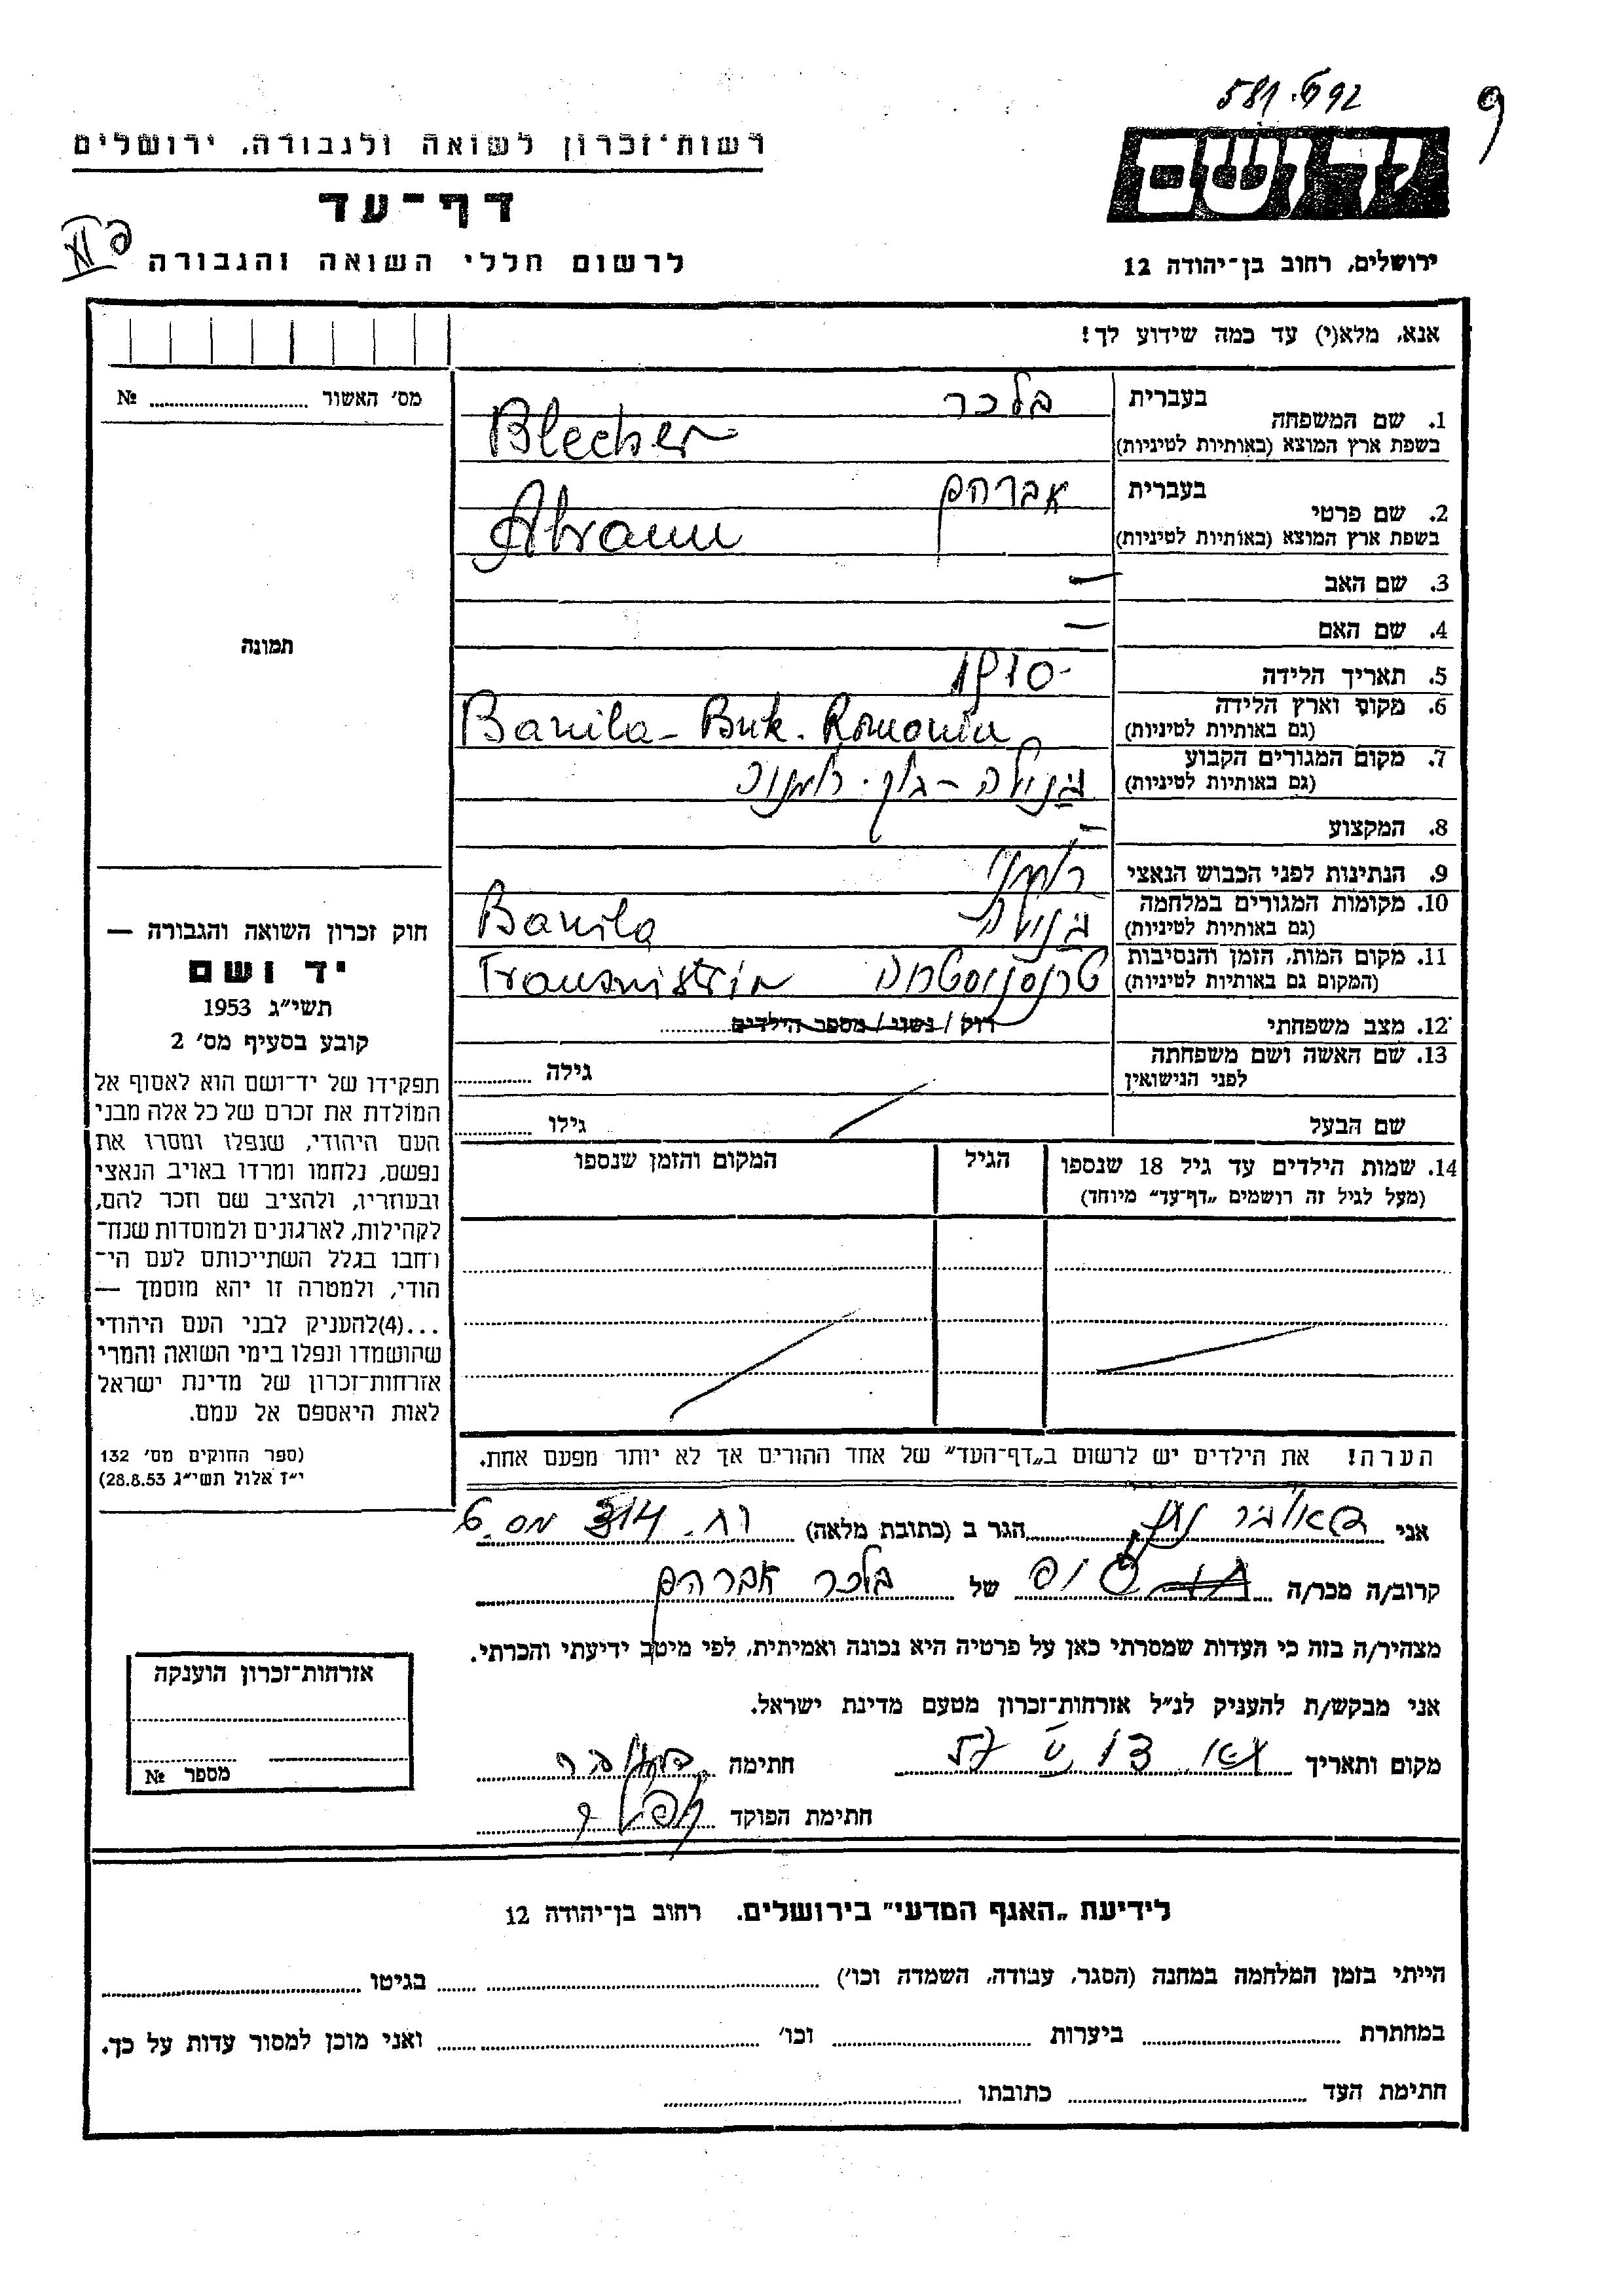 581.692
9
רשות־זכרון לשואה ולגבורה, ירושלים
יד ושם
דף־עד
לרשום חללי השואה והגבורה
ירושלים, רחוב בן־יהודה 12
אנא, מלא(י) עד כמה שידוע לך!
מס׳ האשור № 
1. שם המשפחה
בעברית בלכר
בשפת ארץ המוצא (באותיות לטיניות) Blecher
2. שם פרטי
בעברית אברהם
בשפת ארץ המוצא (באותיות לטיניות) Abram
3. שם האב —
4. שם האם —
5. תאריך הלידה 1910
6. מקום וארץ הלידה
(גם באותיות לטיניות) Banila - Buk. Romania
7. מקום המגורים הקבוע
(גם באותיות לטיניות) בנילה - בוק.
8. המקצוע —
9. הנתינות לפני הכבוש הנאצי רומני
10. מקומות המגורים במלחמה
(גם באותיות לטיניות) בנילה Banila
11. מקום המות, הזמן והנסיבות
(המקום גם באותיות לטיניות) טרנסניסטריה Transnistria
12. מצב משפחתי רוק / נשוי / מספר הילדים
13. שם האשה ושם משפחתה
לפני הנישואין גילה
שם הבעל גילו
14. שמות הילדים עד גיל 18 שנספו הגיל המקום והזמן שנספו
(מעל לגיל זה רושמים „דף־עד״ מיוחד)
הערה! את הילדים יש לרשום ב„דף־העד״ של אחד ההורים אך לא יותר מפעם אחת.
תמונה
חוק זכרון השואה והגבורה —
יד ושם
תשי״ג 1953
קובע בסעיף מס׳ 2
תפקידו של יד־ושם הוא לאסוף אל
המולדת את זכרם של כל אלה מבני
העם היהודי, שנפלו ומסרו את
נפשם, נלחמו ומרדו באויב הנאצי
ובעוזריו, ולהציב שם וזכר להם,
לקהילות, לארגונים ולמוסדות שנח־
רחבו בגלל השתייכותם לעם הי־
הודי, ולמטרה זו יהא מוסמך —
...(4)להעניק לבני העם היהודי
שהושמדו ונפלו בימי השואה והמרי
אזרחות־זכרון של מדינת ישראל
לאות היאספם אל עמם.
(ספר החוקים מס׳ 132
י״ז אלול תשי״ג 28.8.53)
אני נתן הגר ב (כתובת מלאה) רח. 314 מס. 6
קרוב/ה מכר/ה של בלכר אברהם
מצהיר/ה בזה כי העדות שמסרתי כאן על פרטיה היא נכונה ואמיתית, לפי מיטב ידיעתי והכרתי.
אני מבקש/ת להעניק לנ״ל אזרחות־זכרון מטעם מדינת ישראל.
מקום ותאריך חתימה
חתימת הפוקד
אזרחות־זכרון הוענקה
מספר №
לידיעת „האגף המדעי״ בירושלים. רחוב בן־יהודה 12
הייתי בזמן המלחמה במחנה (הסגר, עבודה, השמדה וכו׳) בגיטו
במחתרת ביערות וכו׳ ואני מוכן למסור עדות על כך.
חתימת העד כתובתו